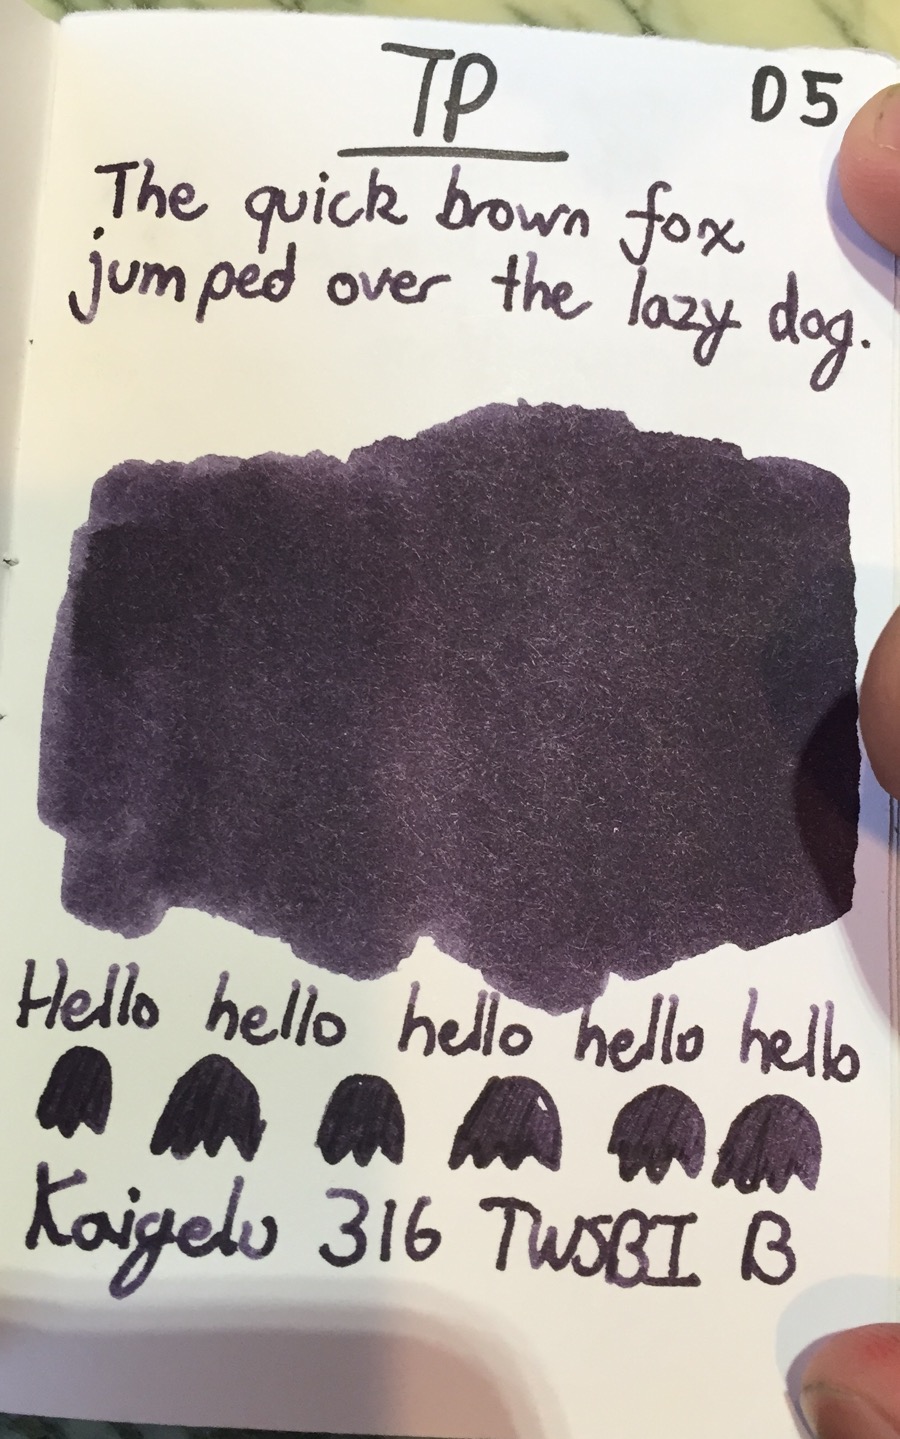 TP D5
The quick brown fox
jumped over the lazy dog.
Hello hello hello hello hello
Kaigelu 316 TWSBI B